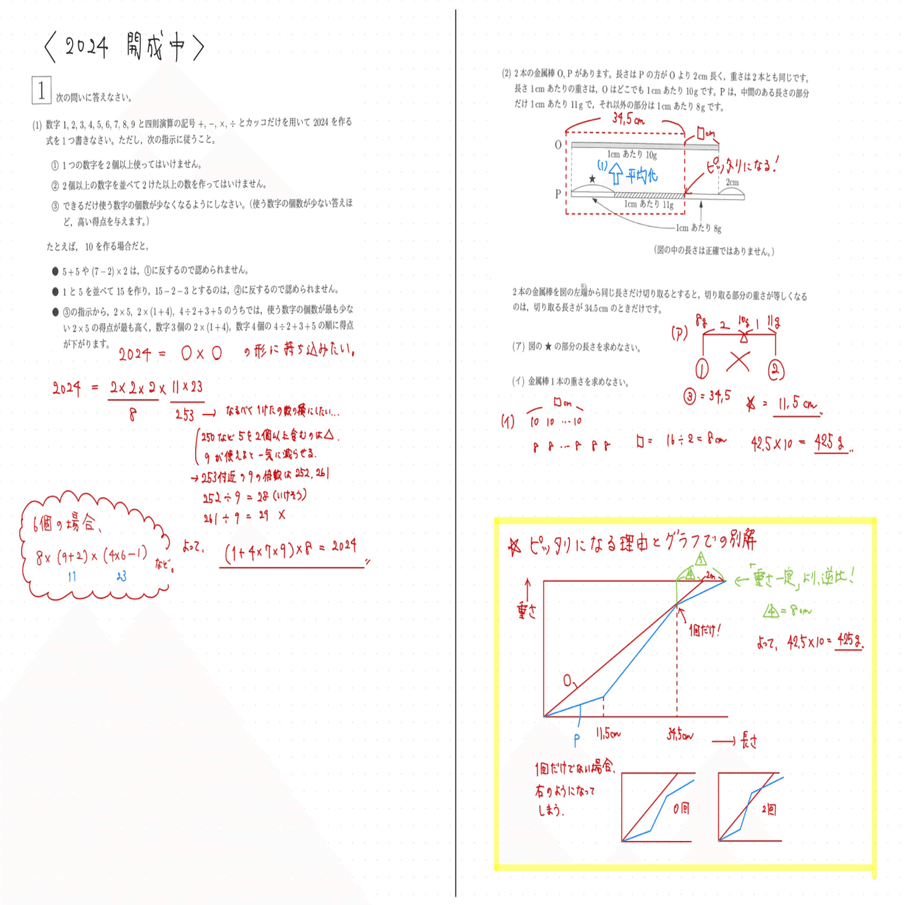 〈2024 開成中〉
1 次の問いに答えなさい。
(1) 数字 1, 2, 3, 4, 5, 6, 7, 8, 9 と四則演算の記号 +, −, ×, ÷ とカッコだけを用いて 2024 を作る
式を1つ書きなさい。ただし、次の指示に従うこと。
① 1つの数字を2個以上使ってはいけません。
② 2個以上の数字を並べて2けた以上の数を作ってはいけません。
③ できるだけ使う数字の個数が少なくなるようにしなさい。(使う数字の個数が少ない答えほ
ど、高い得点を与えます。)
たとえば、10 を作る場合だと、
● 5+5 や (7−2)×2 は、①に反するので認められません。
● 1 と 5 を並べて 15 を作り、15−2−3 とするのは、②に反するので認められません。
● ③の指示から、2×5, 2×(1+4), 4÷2+3+5 のうちでは、使う数字の個数が最も少な
い 2×5 の得点が最も高く、数字3個の 2×(1+4), 数字4個の 4÷2+3+5 の順に得点
が下がります。
2024 = ○×○ の形に持ち込みたい。
2024 = 2×2×2×11×23
8 253 → なるべく1けたの数の積にしたい…
250など5を2個以上含むのは△.
9が使えると一気に減らせる.
→253付近の9の倍数は252, 261
252÷9 = 28 (いけそう)
261÷9 = 29 ×
よって、 (1+4×7×9)×8 = 2024
6個の場合、
8×(9+2)×(4×6−1) など。
11 23
(2) 2本の金属棒 O, P があります。長さは P の方が O より 2cm 長く、重さは2本とも同じです。
長さ 1cm あたりの重さは、O はどこでも 1cm あたり 10g です。P は、中間のある長さの部分
だけ 1cm あたり 11g で、それ以外の部分は 1cm あたり 8g です。
34.5cm □cm
O
1cm あたり 10g
(1) 平均化 ピッタリになる!
★ 2cm
P
1cm あたり 11g
1cm あたり 8g
(図の中の長さは正確ではありません。)
2本の金属棒を図の左端から同じ長さだけ切り取るとすると、切り取る部分の重さが等しくなる
のは、切り取る長さが 34.5cm のときだけです。
(ア) 図の ★ の部分の長さを求めなさい。
(イ) 金属棒1本の重さを求めなさい。
(ア) 8g 2 10g 1 11g
① ②
③ = 34.5
☆ = 11.5 cm
(イ) □cm
10 10 … 10
8 8 … 8 8 8
□ = 16÷2 = 8cm 42.5×10 = 425g
☆ ピッタリになる理由とグラフでの別解
重さ
④ 2cm ←「重さ一定」より、逆比!
4 = 8cm
よって、42.5×10 = 425g
1回だけ!
O
P
11.5cm 34.5cm → 長さ
1回だけでない場合、
右のようになって
しまう.
0回 2回